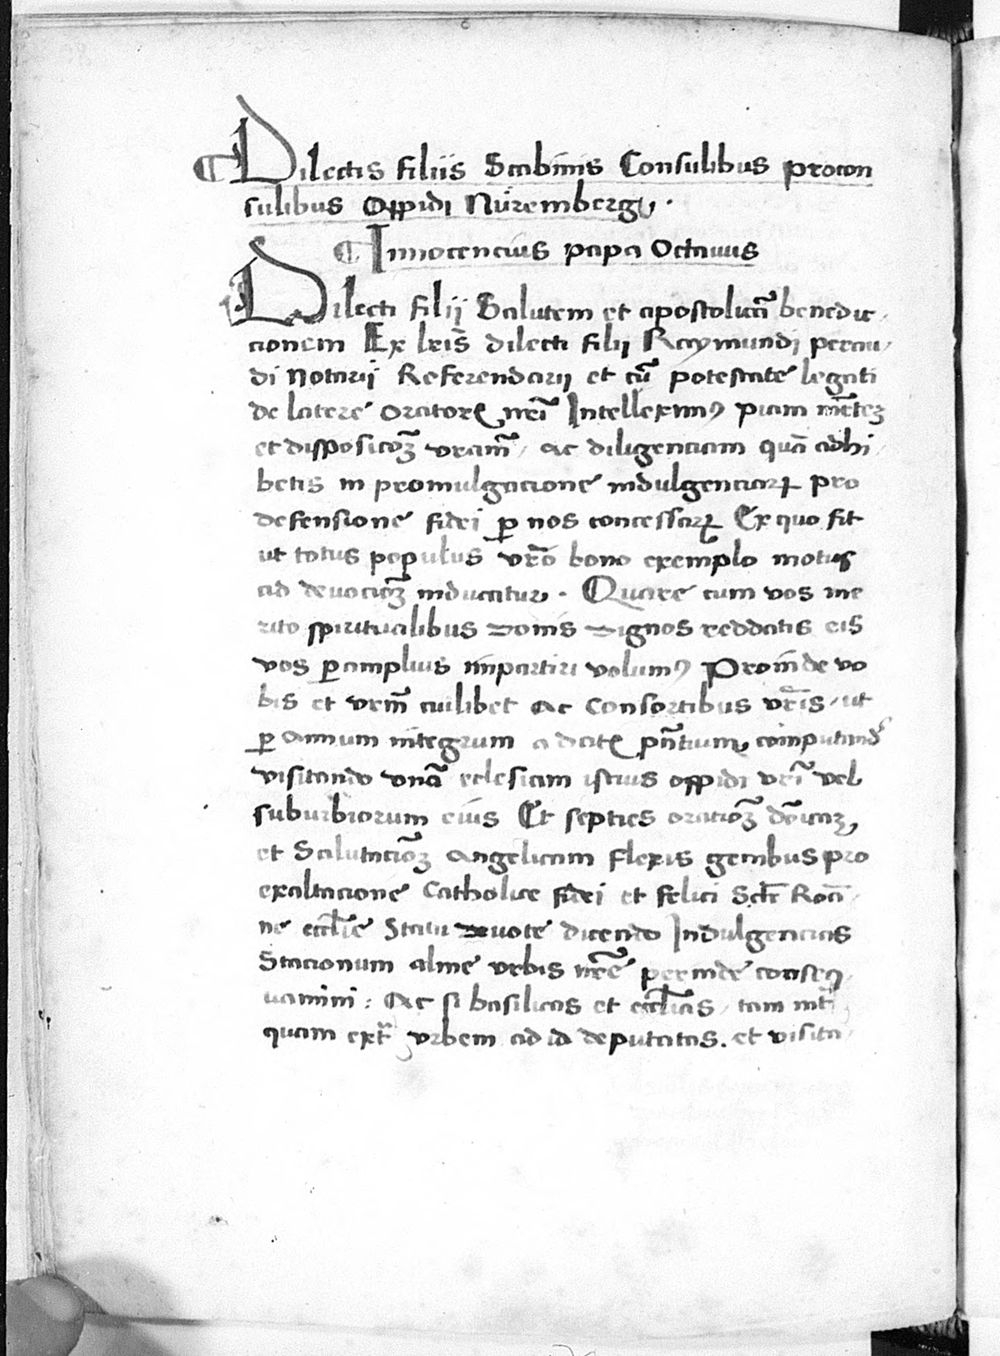 ¶ Dilectis filiis Scabinis Consulibus procon
sulibus Oppidi Nüremberg .
¶ Innocencius papa Octauus
Dilecti filij Salutem et apostolicā benedic
cionem Ex lrīs dilecti filij Raymundi perau
di Notarij Referendarij et cū potestate legati
de latere oratorꝭ nrī Intelleximꝰ piam mētez
et disposicōꝫ vram̄ , ac diligenciam quā adhi
betis in promulgacione indulgenciarꝝ pro
defensione fidei ꝑ nos concessarꝝ Ex quo fit
ut totus populus vrō bono exemplo motus
ad deuocōꝫ inducatur . Quare cum vos me
rito spiritualibus donis dignos reddatis eis
vos ꝑamplius impartiri volumꝰ Proinde vo
bis et vrm̄ cuilibet ac Consortibus vrīs , ut
ꝑ annum integrum a datꝭ pn̄tium computand
visitando vnā eclesiam istius oppidi vrī vel
suburbiorum eius Et septies oratōꝫ dōicaꝫ
et Salutacōꝫ Angelicam flexis genibus pro
exaltacione Catholice fidei et felici Scte Roa
ne eccl̄ie Statu deuote dicendo Indulgencias
Stacionum alme vrbis nrē perinde conseq
uamini : Ac si basilicas et eccl̄ias , tam int
quam ext vrbem ad id deputatas . et visita